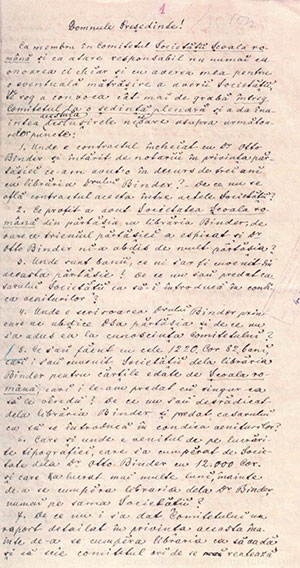 1
Domnule Președinte!
Ca membru în Comitetul Societății Școala ro-
mână și ca atare responsabil nu numai cu
onoarea ci chiar și cu averea mea pentru
eventuala a averii Societății
Vĕ rog a convoca cât mai de grabă întreg
Comitetul la o ședință plenară și a da îna-
intea acestuia asupra următoa-
relor puncte:
1. Unde e contractul încheiat cu Dr. Otto
Binder și întărit de notariu în privința păr-
tășiei ce-am avut-o în decurs de trei ani
cu librăria Drului Binder? De ce nu se
află contractul acesta între actele Societății?
2. Ce profit a avut Societatea Școala ro-
mână din părtășia cu librăria Binder, de
oare ce terminul părtășiei a espirat și Dr
Otto Binder ni-a abdis de mult părtășia?
3. Unde sunt banii, ce ni s'ar fi cuvenit din
aceasta părtășie? De ce nu s'au predat ca-
sarului Societății ca să-i introducă în condi-
ca veniturilor?
4. Unde e scrisoarea Drului Binder prin
care ne abzice Dsa părtășia și de ce nu
s'a adus ea la cunoscința Comitetului?
5. Ce s'au făcut cu cele 1220 Cor 82 fani
cari i-au Societății dela librăria
Binder pentru cărțile edate de Școala ro-
mână, cari i le-am predat cu singur ca
să le vândă? De ce nu s'au
dela librăria Binder și predat casarului
ca să se introducă în condica veniturilor?
6. Care și unde e venitul de pe lucrări-
le tipografiei, care s'a cumpărat de Socie-
tate dela Dr. Otto Binder cu 12.000 Cor.
și care a lucrat mai multe luni, înainte
de-a se cumpăra libraria dela Dr Binder
numai pe sama Societății?
7. De ce nu i s'a dat Comitetului un
raport detailat în privința aceasta îna-
inte de-a se cumpăra libraria ca să vadă
și să scie comitetul ori de se